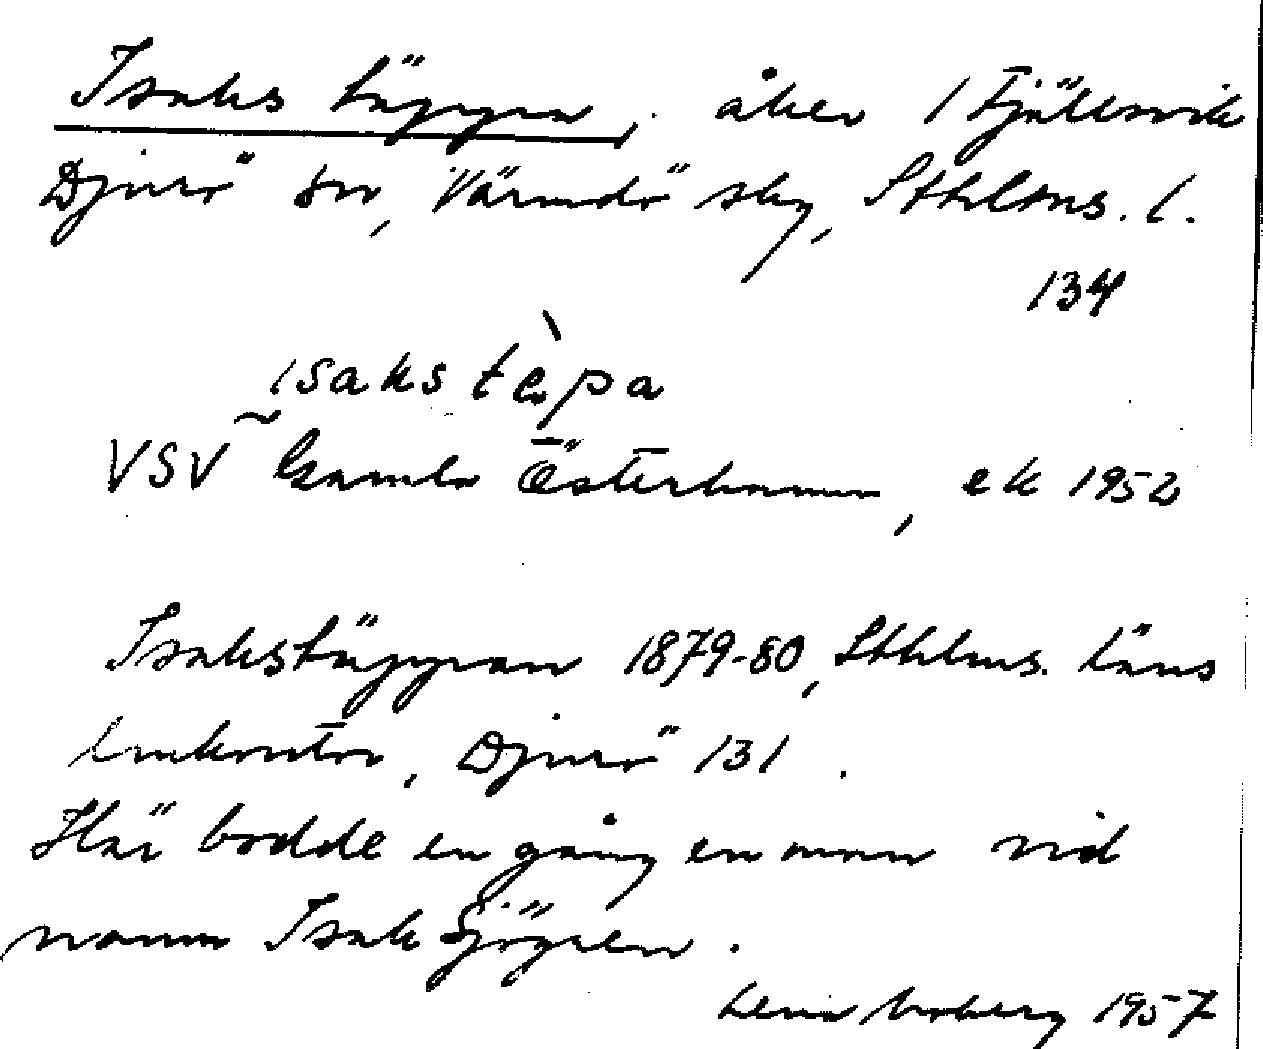 Isakstäppa, åker i Fjällsvik
Djurö sn, Värmdö skg, Sthlms. l.
134
ısakstèpa
VSV Gamla Österhamn, ek 1952
Isakstäppan 1879-80, Sthlms. läns
lmkontor, Djurö 131.
Här bodde en gång en man vid
namn Isak Sjögren.
Lena Moberg 1957